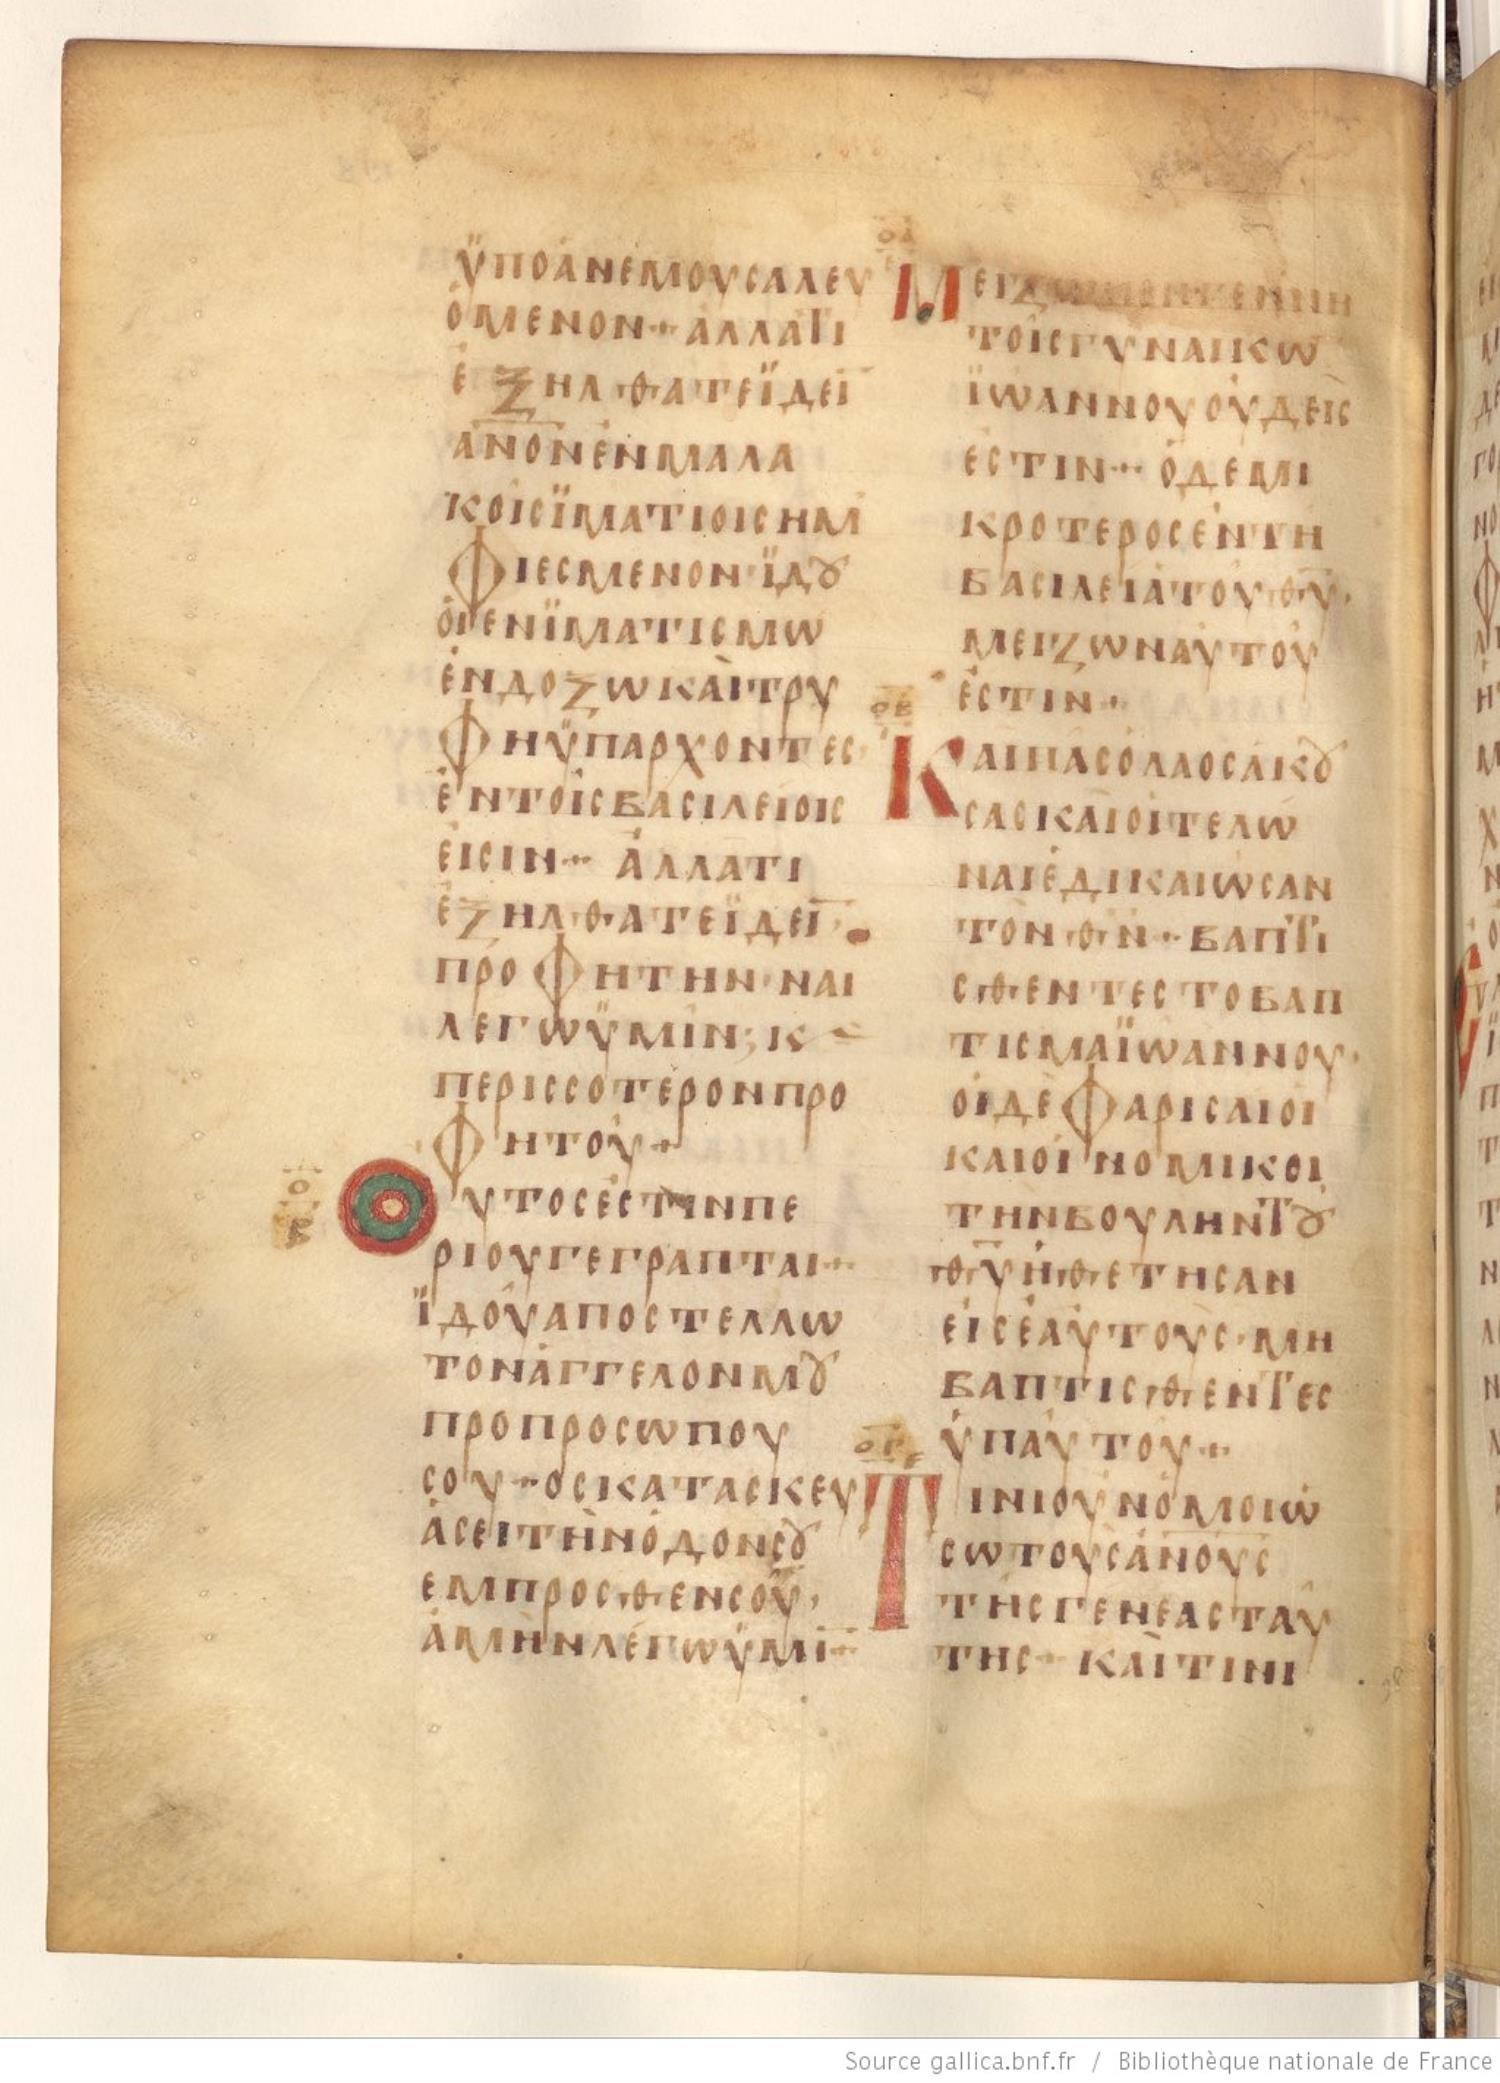 ὙΠΟἈΝΕΜΟΥСΑΛΕΥ
ὉΜΕΝΟΝ·ἈΛΛΑΤΙ
ἘΞΗΛΘΑΤΕΪΔΕΙ̅
ΑΝ̅Ο̅Ν̅ἘΝΜΑΛΑ
ΚΟΙСΪΜΑΤΙΟΙСΗΜ
ΦΙΕСΜΕΝΟΝ·ΪΔȢ
ὉΙΕΝΪΜΑΤΙСΜΩ
ἘΝΔΟΞΩΚΑῚΤΡΥ
ΦΗΫΠΑΡΧΟΝΤΕС
ἘΝΤΟΙСΒΑСΙΛΕΙΟΙС
ΕΙСΙΝ·ἈΛΛΑΤΙ
ἘΞΗΛΘΑΤΕΪΔΕΙ̅
ΠΡΟΦΗΤΗΝ·ΝΑΙ
ΛΕΓΩΫΜΙΝ;Κ
ΠΕΡΙССΟΤΕΡΟΝΠΡΟ
ΦΗΤΟΥ+
ΟΑ
ΟΥΤΟСἘСΤΙΝΠΕ
ΡΙΟΥΓΕΓΡΑΠΤΑΙ·
ΪΔΟΥΑΠΟСΤΕΛΛΩ
ΤΟΝἈΓΓΕΛΟΝΜȢ
ΠΡΟΠΡΟСΩΠΟΥ
СΟΥ+ΟСΚΑΤΑСΚΕΥ
ἈСΕΙΤῊΝὉΔΟΝСȢ
ΕΜΠΡΟСΘΕΝСΟΥ·
ἈΜῊΝΛΕΓΩΫΜΙ̅
ΟΔ
ΜΕΙΖΩΝΕΝΓΕΝΝΗ
ΤΟΙСΓΥΝΑΙΚΩ̅
ΪΩΑΝΝΟΥΟΥΔΕΙС
ἘСΤΙΝ·ὉΔΕΜΙ
ΚΡΟΤΕΡΟСἘΝΤΗ
ΒΑСΙΛΕΙΑΤΟΥΘ̅Υ̅·
ΜΕΙΖΩΝΑΥΤΟΥ
ἘСΤΙΝ·
ΟΕ
ΚΑΙΠΑСὉΛΑΟСΑΚȢ
СΑСΚΑΙΟΙΤΕΛΩ
ΝΑΙἘΔΙΚΑΙΩСΑΝ
ΤΟΝΘ̅Ν̅·ΒΑΠΤΙ
СΘΕΝΤΕСΤΟΒΑΠ
ΤΙСΜΑΪΩΑΝΝΟΥ·
ΟΙΔΕΦΑΡΙСΑΙΟΙ
ΚΑΙΟΙΝΟΜΙΚΟΙ
ΤΗΝΒΟΥΛΗΝΤȢ
Θ̅Υ̅ἨΘΕΤΗСΑΝ
ΕΙСἘΑΥΤΟΥС·ΜΗ
ΒΑΠΤΙСΘΕΝΤΕС
ΫΠΑΥΤΟΥ+
ΤΙΝΙΟΥΝὉΜΟΙΩ
СΩΤΟΥСἈ̅Ν̅Ο̅Υ̅С̅
ΤΗСΓΕΝΕΑСΤΑΥ
ΤΗС·ΚΑῚΤΙΝΙ
Source gallica.bnf.fr / Bibliothèque nationale de France